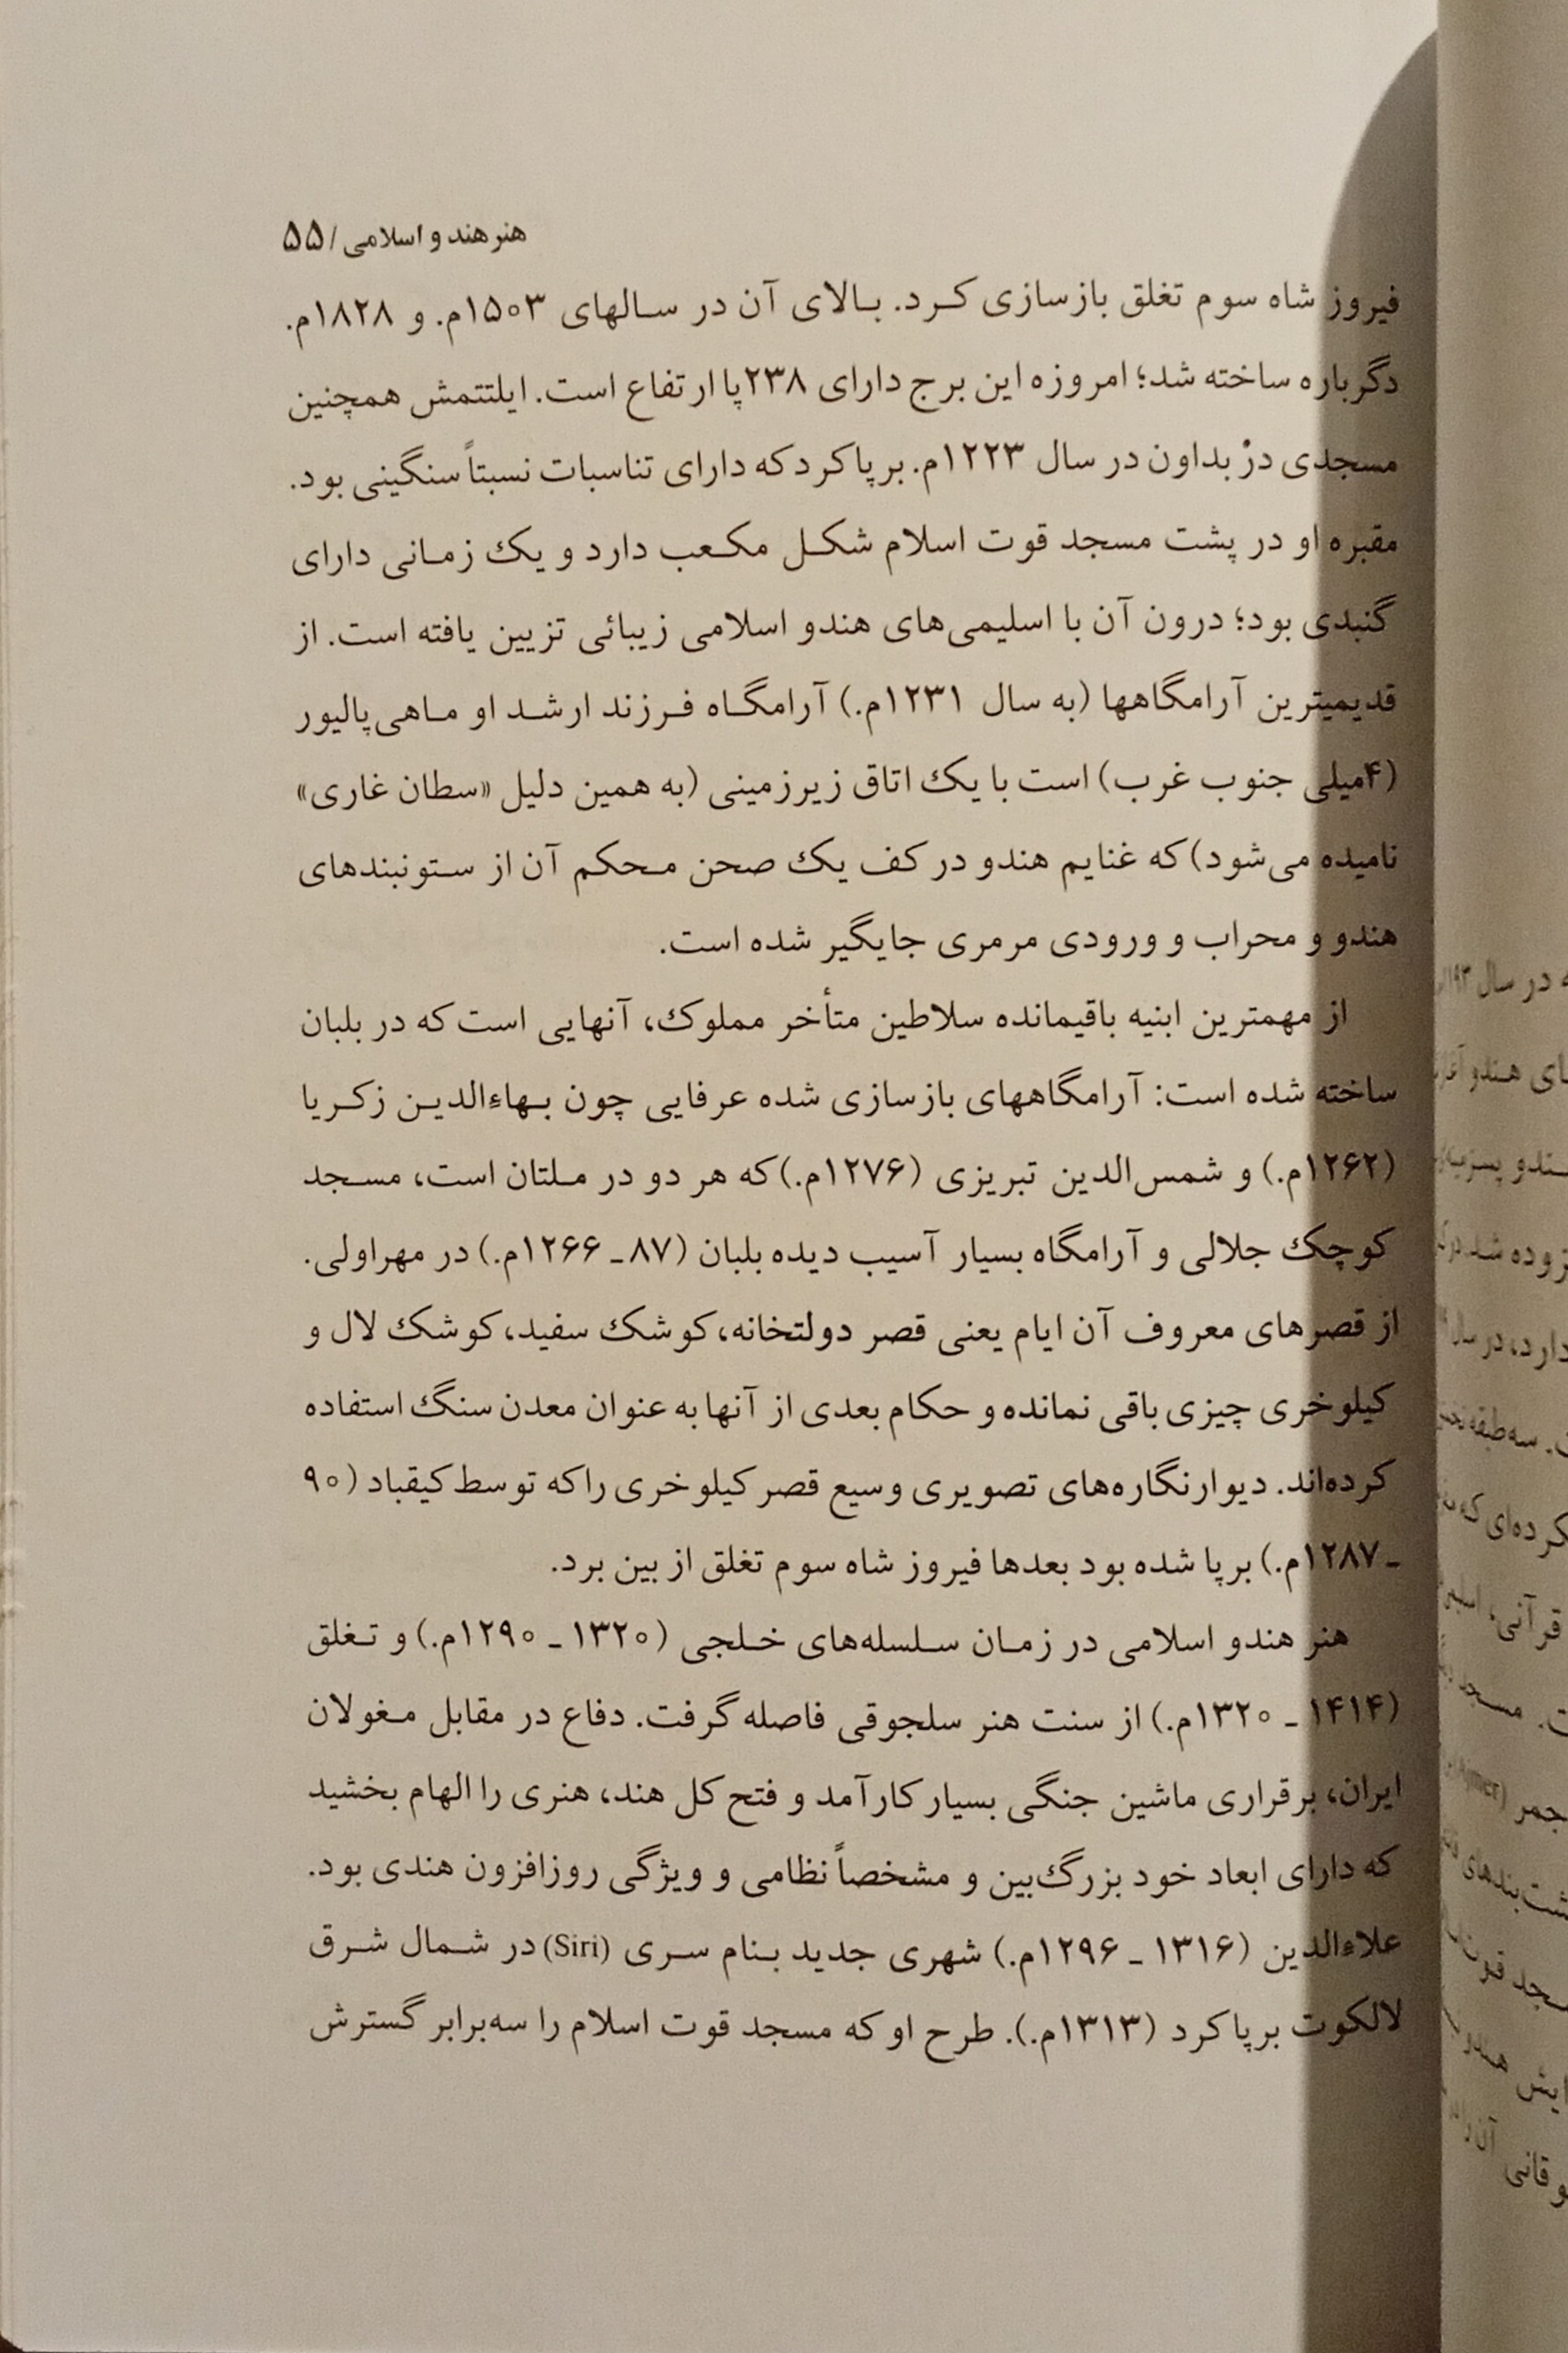 هنر هند و اسلامی / ۵۵
فیروز شاه سوم تغلق بازسازی کرد. بالای آن در سالهای ۱۵۰۳م. و ۱۸۲۸م.
دگرباره ساخته شد؛ امروزه این برج دارای ۲۳۸پا ارتفاع است. ایلتتمش همچنین
مسجدی در بداون در سال ۱۲۲۳م. برپا کرد که دارای تناسبات نسبتاً سنگینی بود.
مقبره او در پشت مسجد قوت اسلام شکل مکعب دارد و یک زمانی دارای
گنبدی بود؛ درون آن با اسلیمی‌های هندو اسلامی زیبائی تزیین یافته است. از
قدیمیترین آرامگاهها (به سال ۱۲۳۱م.) آرامگاه فرزند ارشد او ماهی‌پالیور
(۴میلی جنوب غرب) است با یک اتاق زیرزمینی (به همین دلیل «سطان غاری»
نامیده می‌شود) که غنایم هندو در کف یک صحن محکم آن از ستونبندهای
هندو و محراب و ورودی مرمری جایگیر شده است.
از مهمترین ابنیه باقیمانده سلاطین متأخر مملوک، آنهایی است که در بلبان
ساخته شده است: آرامگاههای بازسازی شده عرفایی چون بهاءالدین زکریا
(۱۲۶۲م.) و شمس‌الدین تبریزی (۱۲۷۶م.) که هر دو در ملتان است، مسجد
کوچک جلالی و آرامگاه بسیار آسیب دیده بلبان (۸۷ـ ۱۲۶۶م.) در مهراولی.
از قصرهای معروف آن ایام یعنی قصر دولتخانه، کوشک سفید، کوشک لال و
کیلوخری چیزی باقی نمانده و حکام بعدی از آنها به عنوان معدن سنگ استفاده
کرده‌اند. دیوارنگاره‌های تصویری وسیع قصر کیلوخری را که توسط کیقباد (۹۰
ـ ۱۲۸۷م.) برپا شده بود بعدها فیروز شاه سوم تغلق از بین برد.
هنر هندو اسلامی در زمان سلسله‌های خلجی (۱۳۲۰ ـ ۱۲۹۰م.) و تغلق
(۱۴۱۴ ـ ۱۳۲۰م.) از سنت هنر سلجوقی فاصله گرفت. دفاع در مقابل مغولان
ایران، برقراری ماشین جنگی بسیار کارآمد و فتح کل هند، هنری را الهام بخشید
که دارای ابعاد خود بزرگ‌بین و مشخصاً نظامی و ویژگی روزافزون هندی بود.
علاءالدین (۱۳۱۶ ـ ۱۲۹۶م.) شهری جدید بنام سری (Siri) در شمال شرق
لالکوت برپا کرد (۱۳۱۳م.). طرح او که مسجد قوت اسلام را سه‌برابر گسترش